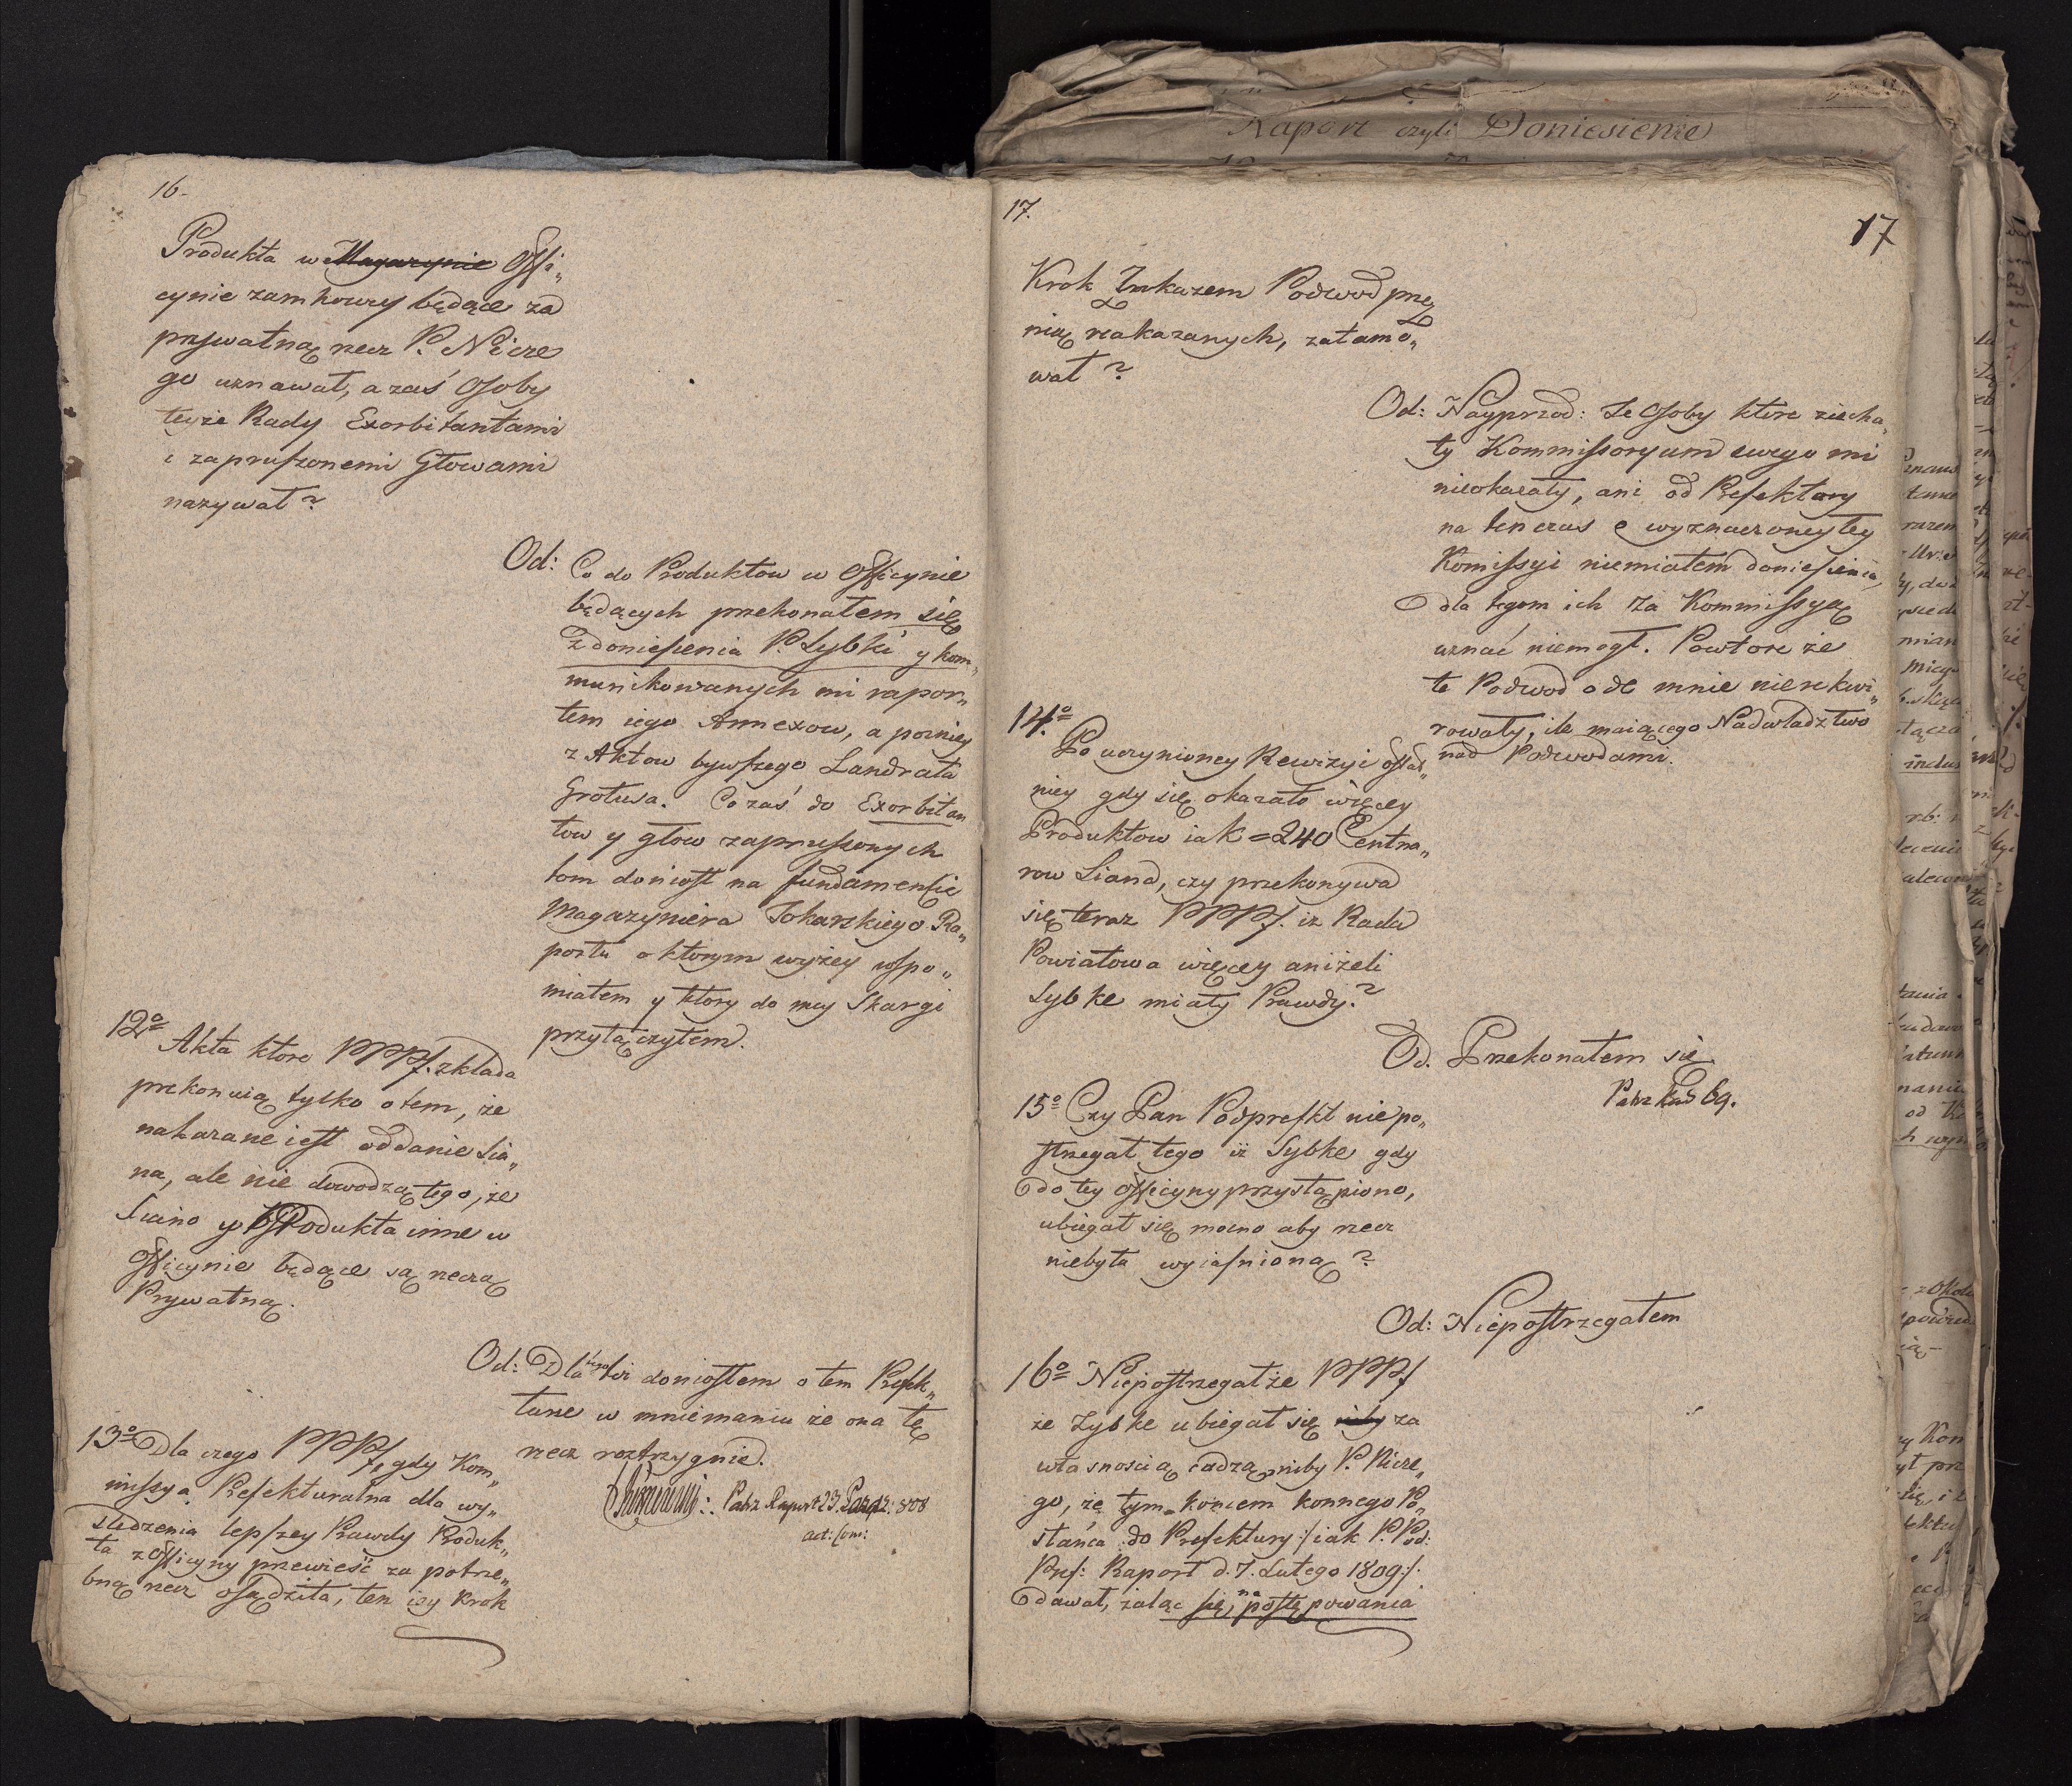 16-
Produkta w Magazynie Offi„
cynie zamkowey będące za
prywatną rzecz P. Nicze
go uznawał, a zaś Osoby
teyże Rady Exorbitantami
i zapruszonemi Głowami
nazywał?
Od: Co do Produktow w Officynie
będących przekonałem się
z doniesienia P. Sybki y kom„
munikowanych mi rapor„
tem iego Annexow, a pozniey
z Aktow bywszego Landrata
Grotusa. Co zaś do Exorbitan
tow y głow zapruszonych
tom doniosł na fundamencie
Magazyniera Tokarskiego Ra„
portu o ktorym wyżey wspo„
miałem y ktory do mey Skargi
przyłączyłem.
12o Akta ktore PPPf. składa
przekonuią tylko o tem, że
nakazane iest oddanie Sia„
na, ale nie dowodzą tego, że
Siano y Produkta inne w
Officynie będące są rzeczą
Prywatną.
Od: Dla tego doniosłem o tem Prefek„
turze w mniemaniu że ona tę
rzecz roztrzygnie.
Patrz Raport 23. Pazdz: 808
act: Com:
13o Dla czego PPPf, gdy Kom„
missya Prefekturalna dla wy„
sledzenia lepszey Prawdy Produk„
ta z Officyny przewieść za potrze„
bną rzecz osądziła, ten iey Krok
17.
17
Raport czyli Doniesienie
Krok Zakazem Podwod prze
nią nakazanych, zatamo„
wał?
Od: Nayprzod: że Osoby ktore ziecha„
ły Kommissoryum swego mi
nieokazały, ani od Prefektury
na ten czas o wyznaczoney tey
Komissyi niemiałem doniesienia,
dla tegom ich za Kommissyą
uznać niemogł. Powtore że
te Podwod ode mnie nierekwi„
rowały, ile maiącego Nadwładztwo
nad Podwodami.
14o
Po uczynioney Rewizyi ostat„
niey gdy się okazało więcey
Produktow iak = 240 Centna„
row Siana, czy przekonywa
się teraz PPPf. iz Rada
Powiatowa więcey aniżeli
Sybke miały Prawdy?
Od. Przekonałem się
69.
15o Czy Pan Podprefkt niepo„
strzegał tego iż Sybke gdy
do tey Officyny przystąpiono,
ubiegał się mocno aby rzecz
niebyła wyiaśnioną?
Od: Niepostrzegałem
16o Niepostrzegał że PPPf
że Zybke ubiegał się niby za
własnością cudzą niby P. Nicze„
go, że tym koncem konnego Po„
słańca do Prefektury :/iak P. Pod:
Pref: Raport d. 7. Lutego 1809:/.
dawał, żaląc się, na postępowania